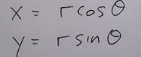 x = r cos θ
y = r sin θ